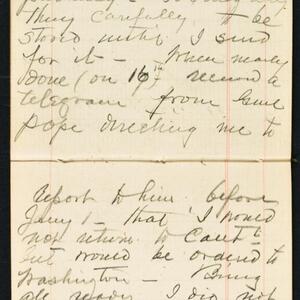 thing carefully to be
stored until I send
for it – When nearly
done (on 16th received a
telegram from Genl
Pope directing me to
report to him before
Jany 1 – that I would
not return to Cant.
but would be ordered to
Washington – Being
all ready I did not